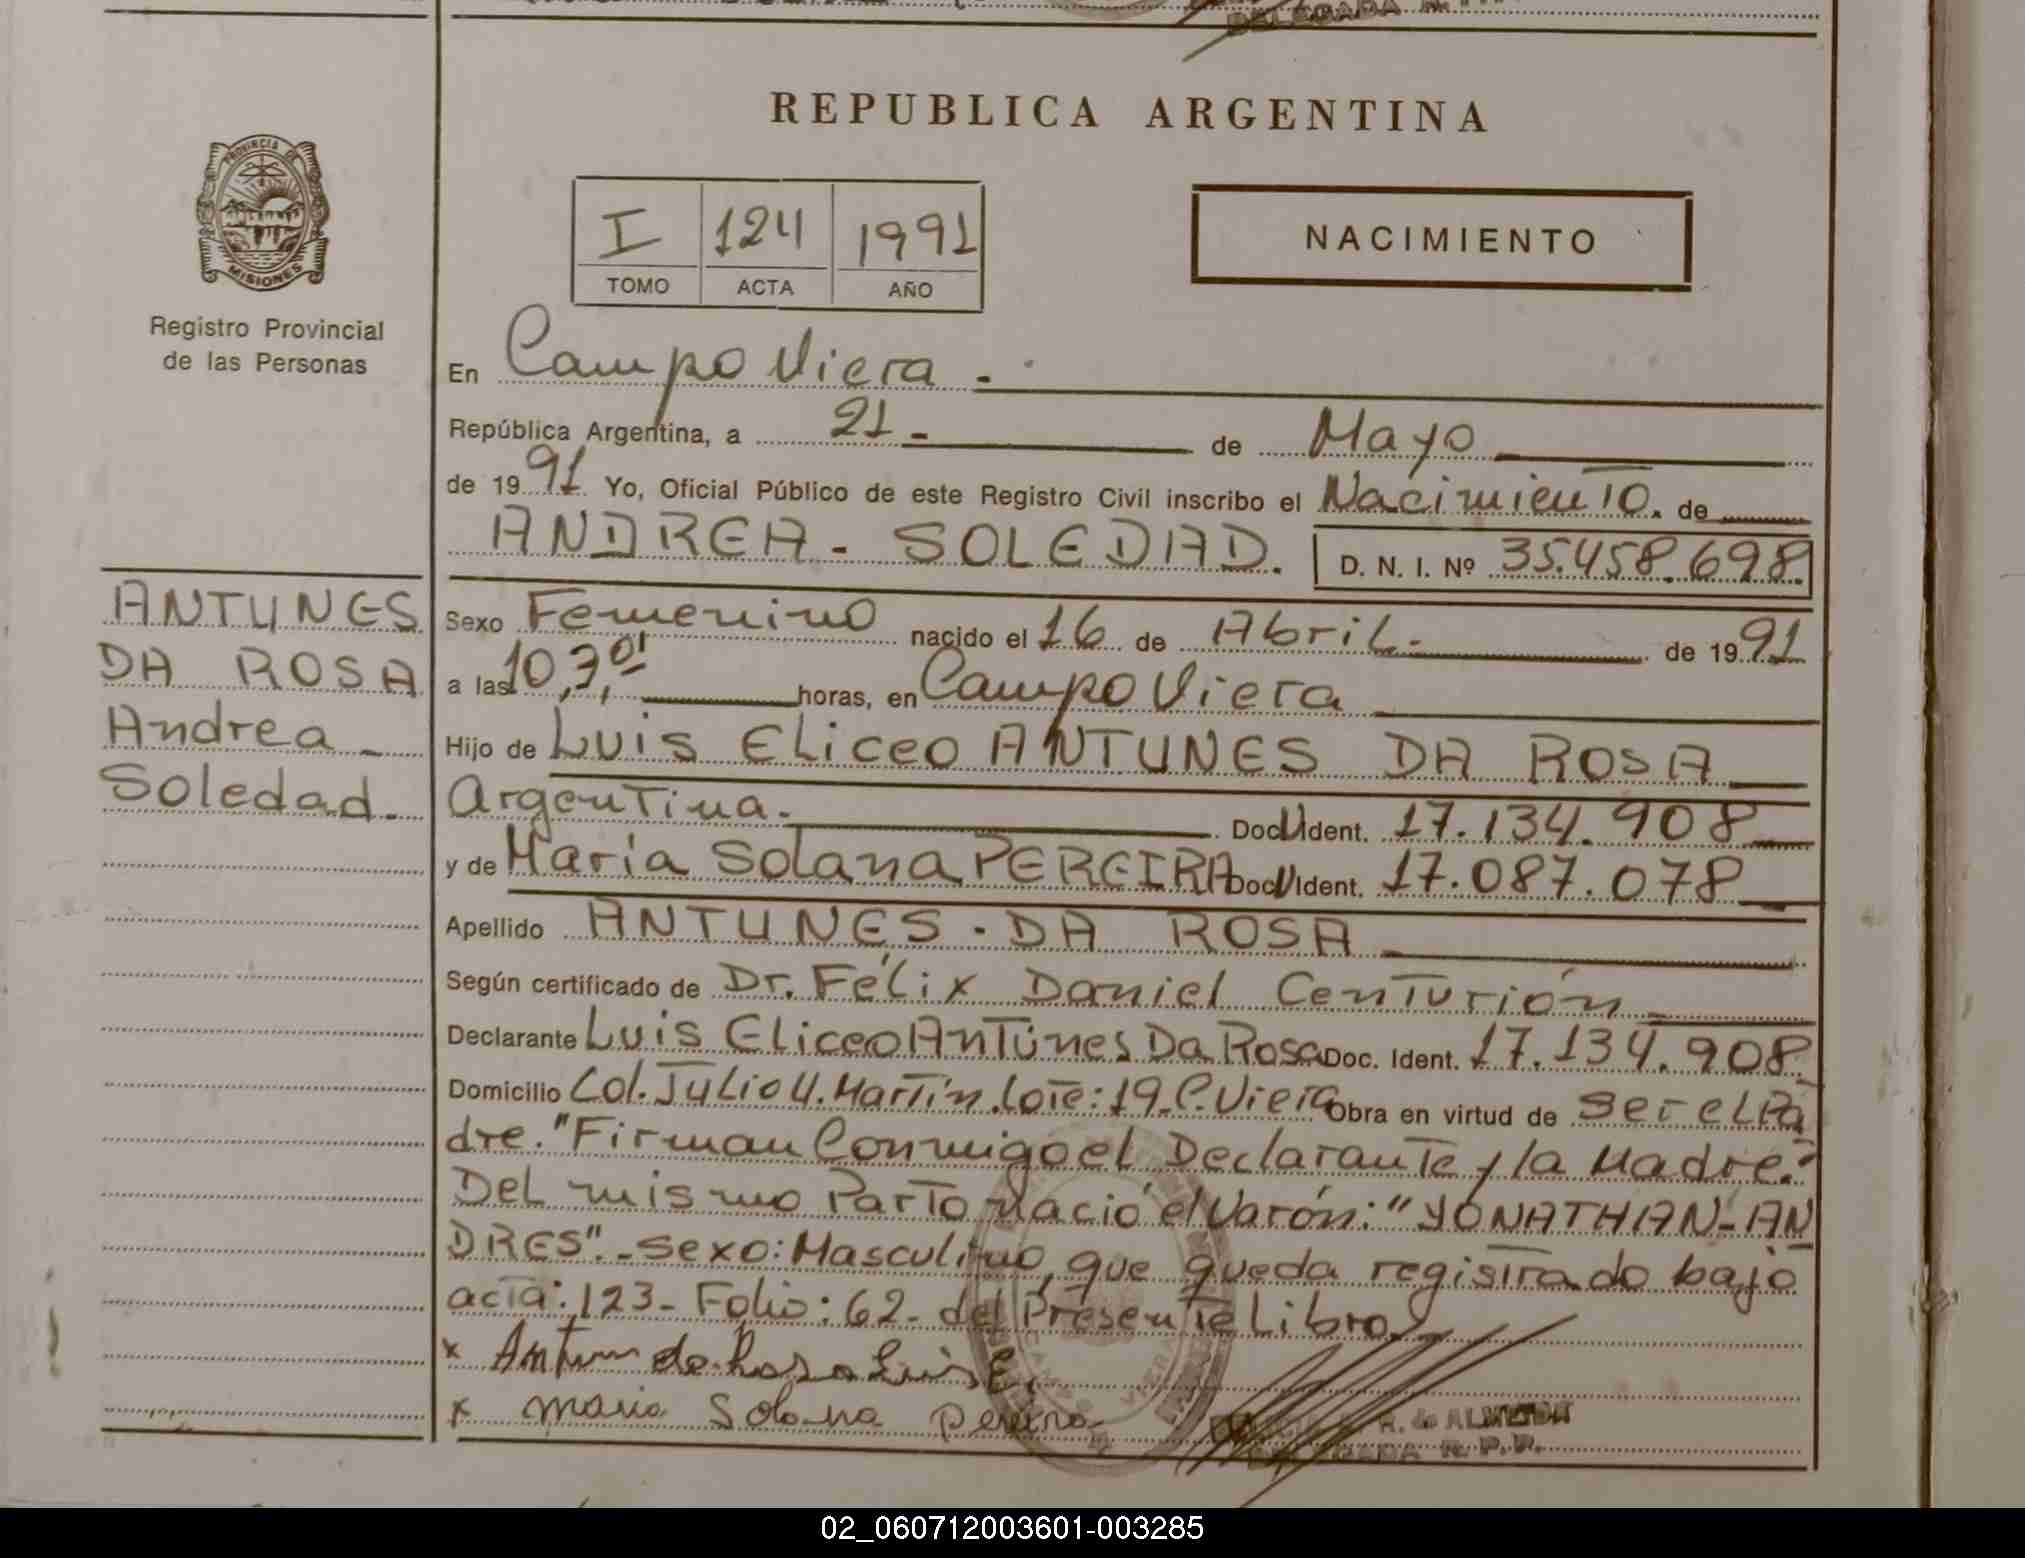 REPUBLICA ARGENTINA
PROVINCIA DE
MISIONES
Registro Provincial
de las Personas
I 124 1991
TOMO ACTA AÑO
NACIMIENTO
En Campo Viera -
República Argentina, a 21- de Mayo
de 1991 Yo, Oficial Público de este Registro Civil inscribo el Nacimiento. de
ANDREA - SOLEDAD. D. N. I. Nº 35.458.698.
ANTUNES
DA ROSA
Andrea -
Soledad.
Sexo Femenino nacido el 16 de Abril. de 1991
a las 10,30' horas, en Campo Viera
Hijo de Luis Eliceo ANTUNES DA ROSA
Argentina. Doc. Ident. 17.134.908
y de María Solana PEREIRA Doc. Ident. 17.087.078
Apellido ANTUNES - DA ROSA
Según certificado de Dr. Félix Daniel Centurión
Declarante Luis Eliceo Antúnes Da Rosa Doc. Ident. 17.134.908.
Domicilio Col. Julio U. Martín. Lote: 19. C. Viera Obra en virtud de ser el Pa
dre. "Firman Conmigo el Declarante y la Madre."
Del mismo Parto nació el Varón: "YONATHAN-AN
DRES".- Sexo: Masculino, que queda registrado bajo
acta: 123- Folio: 62- del Presente Libro.
x Antunes da Rosa Luis E.
x Maria Solana Pereira
R. de ALMEIDA
DELEGADA R. P. P.
02_060712003601-003285